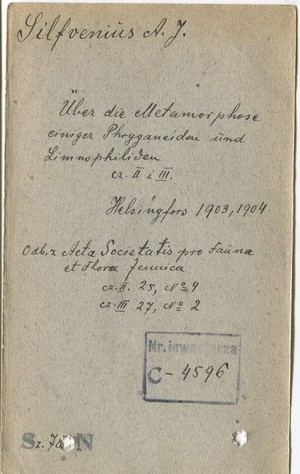 Silfvenius A. J.
Über die Metamorphose
einiger Phryganeiden und
Limnophiliden
cz. II i III.
Helsingfors 1903, 1904
Odb. z Acta Societatis pro Fauna
et Flora fennica
cz. II. 25, No 4
cz. III 27, No 2
Nr. inwentarza
C - 4596
S z. N